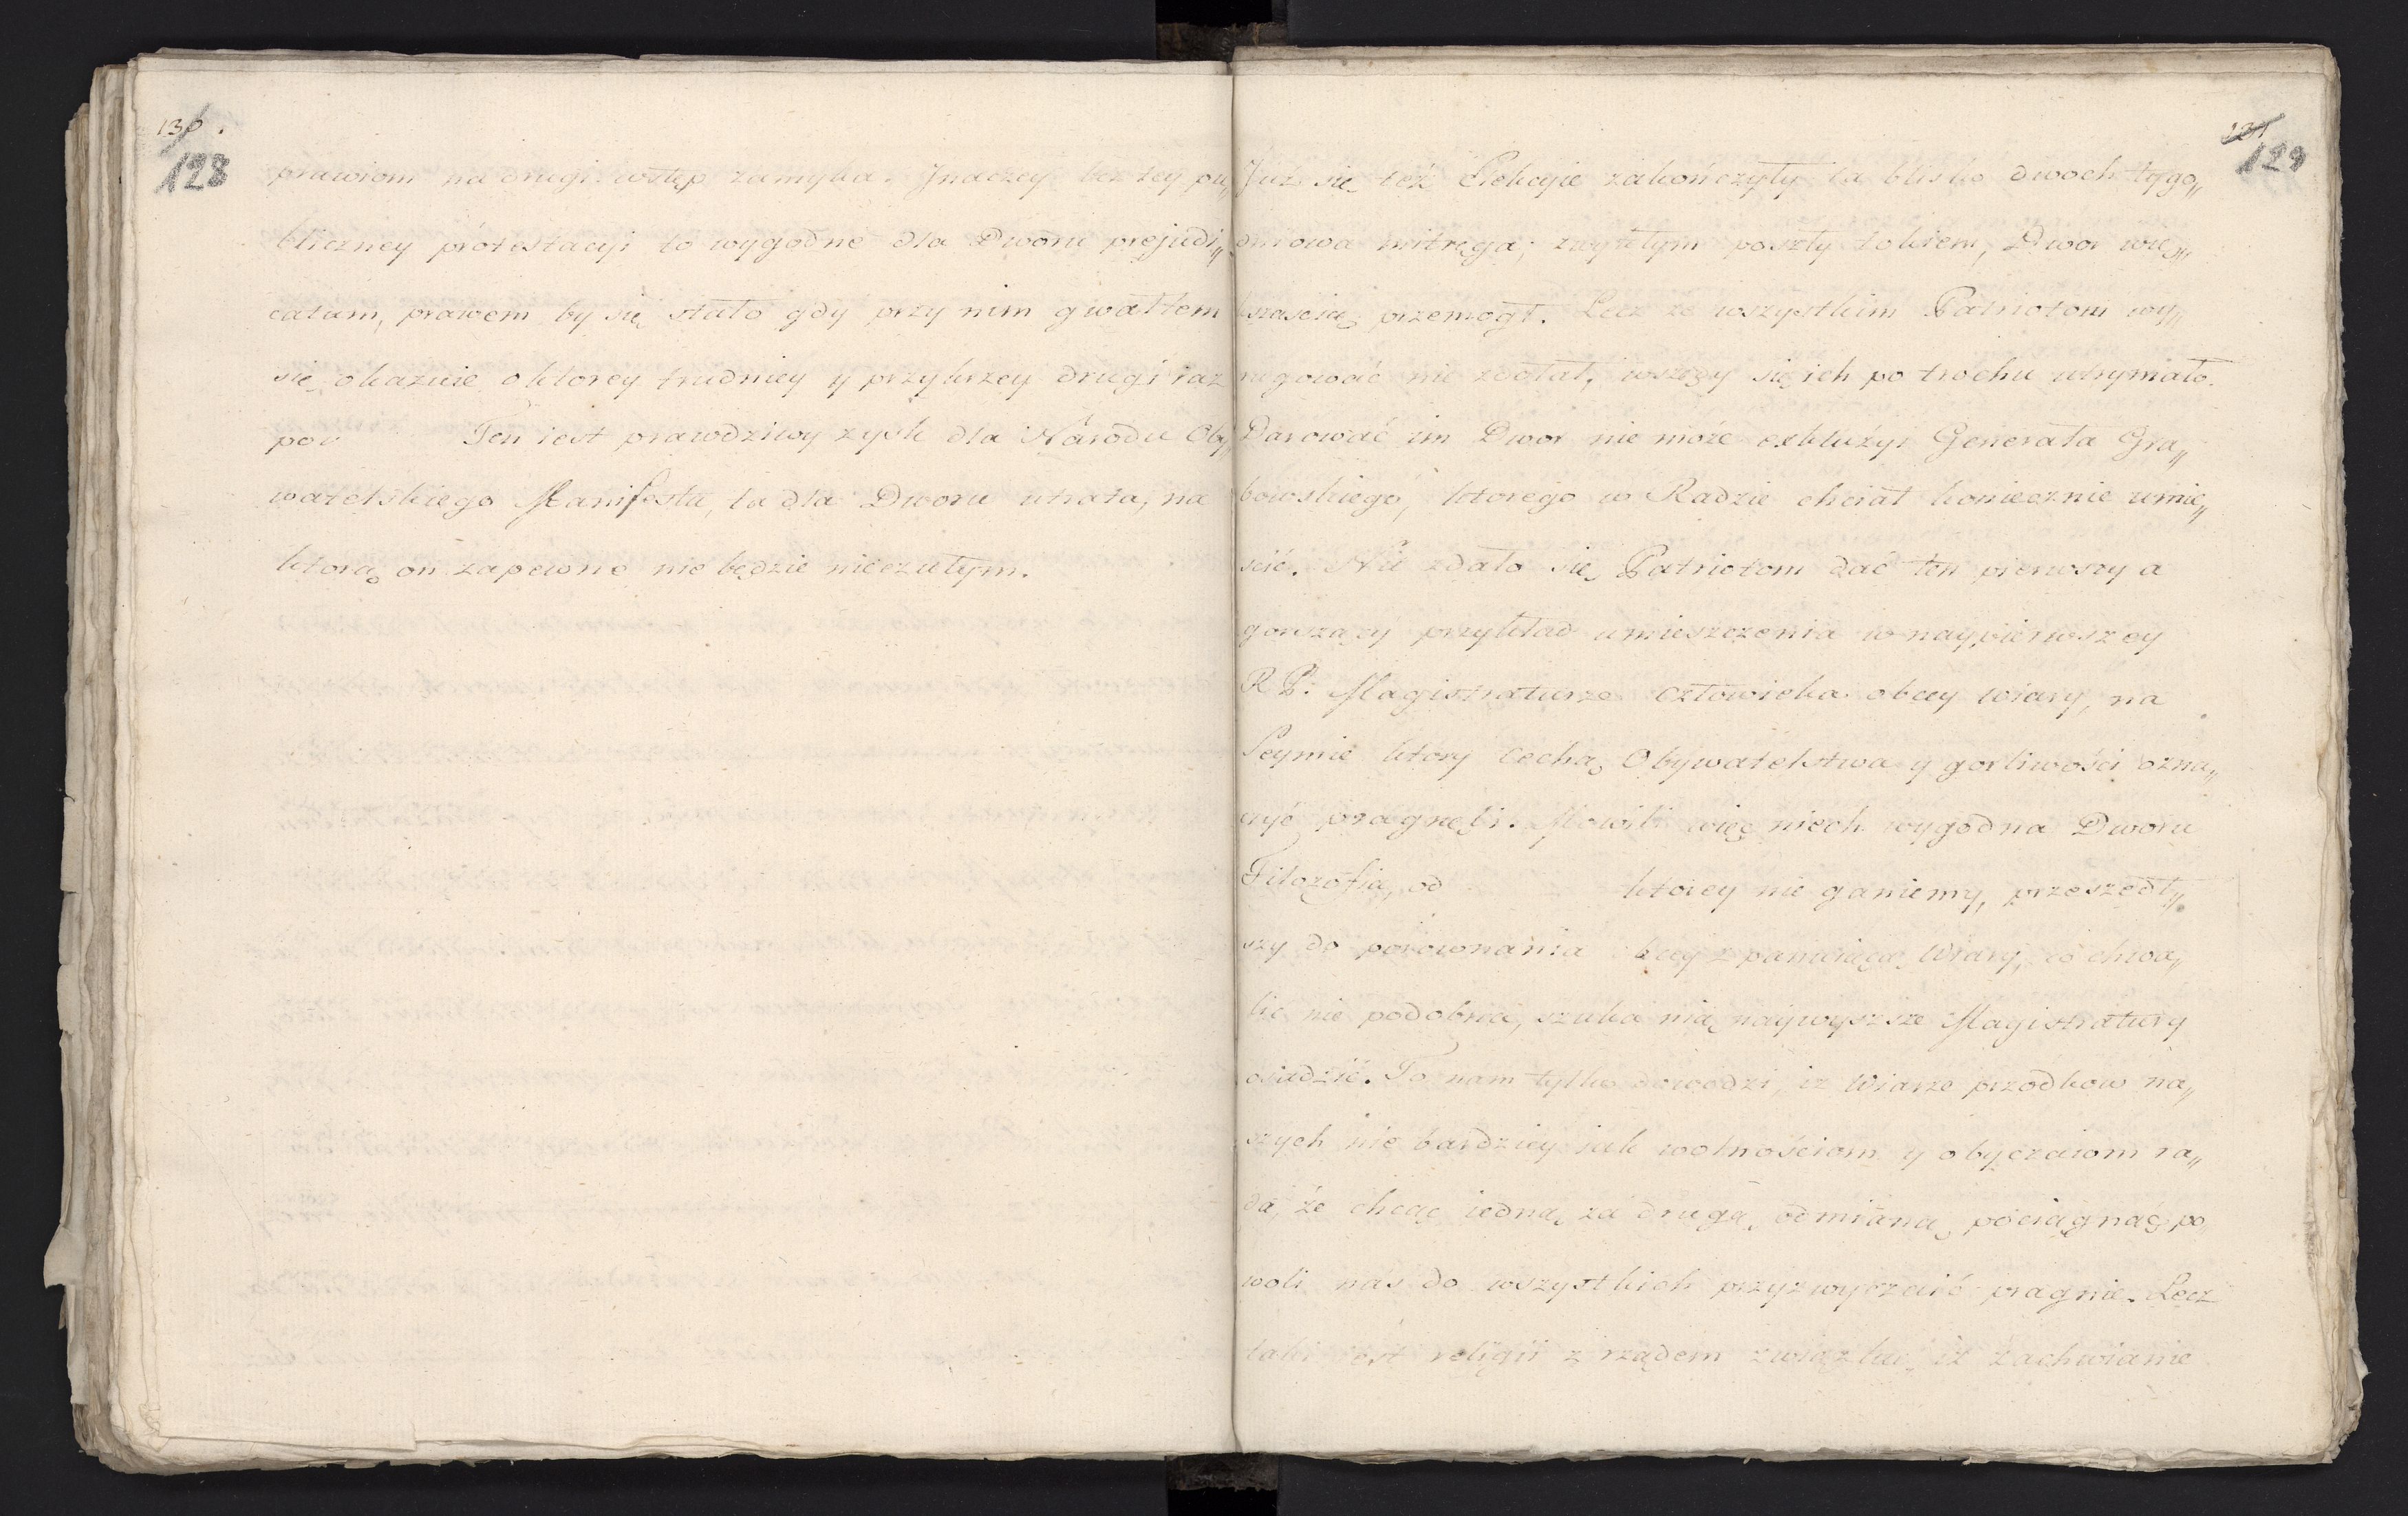 130.
128
prawiom na drugi wstęp zamyka. Jnaczey bez tey pu„
bliczney protestacyi to wygodne dla Dworu prejudi„
catum, prawem by się stało gdy przy nim gwałtem
się okazuie o ktorey trudniey y przykrzey drugi raz
pow Ten iest prawdziwy zysk dla Narodu Oby„
watelskiego Manifestu, ta dla Dworu utrata, na
ktorą on zapewne nie będzie nieczułym.
131
129
Już się też Elekcyie zakończyły ta blisko dwoch tygo„
dniowa mitręga; zwykłym poszły tokiem, Dwor wię„
kszością przemogł. Lecz ze wszystkim Patriotow wy„
rugować nie zdołał, wszędy się ich po trochu utrymało.
Darować im Dwor nie może exkluzyi Generała Gra„
bowskiego, ktorego w Radzie chciał koniecznie umie„
scić. Nie zdało się Patriotom dać ten pierwszy a
gorszący przykład umieszczenia w naypierwszey
R P: Magistraturze człowieka obcey wiary, na
Seymie ktory cechą Obywatelstwa y gorliwości ozna„
czyć pragnęli. Mowili więc niech wygodna Dworu
Filozofia, od ktorey nie ganiemy, przeszedł„
szy do porownania bcey z panuiącą Wiary, co chwa„
lić nie podobna, szuka nią naywyższe Magistratury
osadzić. To nam tylko dowodzi, iż Wiarze przodkow na„
szych nie bardziey iak wolnościom y obyczaiom ra„
da, że chcąc iedną za drugą odmianą pociągnąć, po„
woli nas do wszystkich przyzwyczaić pragnie. Lecz
taki iest religii z rządem związku, iż zachwianie